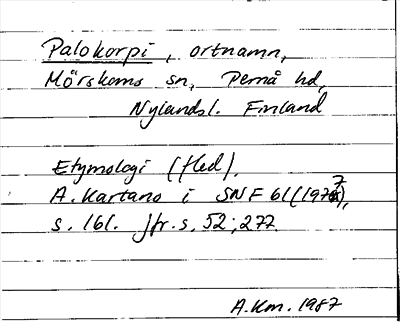 Palokorpi, ortnamn,
Mörskoms sn, Pernå hd,
Nylandsl. Finland
Etymologi (fled).
A. Kartano i SNF 61(1977),
s. 161. Jfr. s. 52; 277
A.Km. 1987